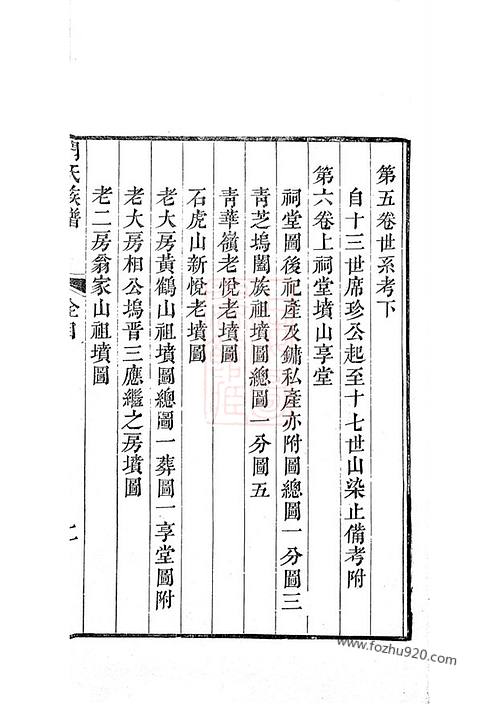 第五卷世系考下
自十三世席珍公起至十七世山染止備考附
第六卷上祠堂墳山享堂
祠堂圖後祀產及鏞私產亦附圖總圖一分圖三
青芝塢闔族祖墳圖總圖一分圖五
青華嶺老悅老墳圖
石虎山新悅老墳圖
老大房黃鶴山祖墳圖總圖一葬圖一享堂圖附
老大房相公塢晋三應繼之房墳圖
老二房翁家山祖墳圖
氏族譜
www.fozhu920.com